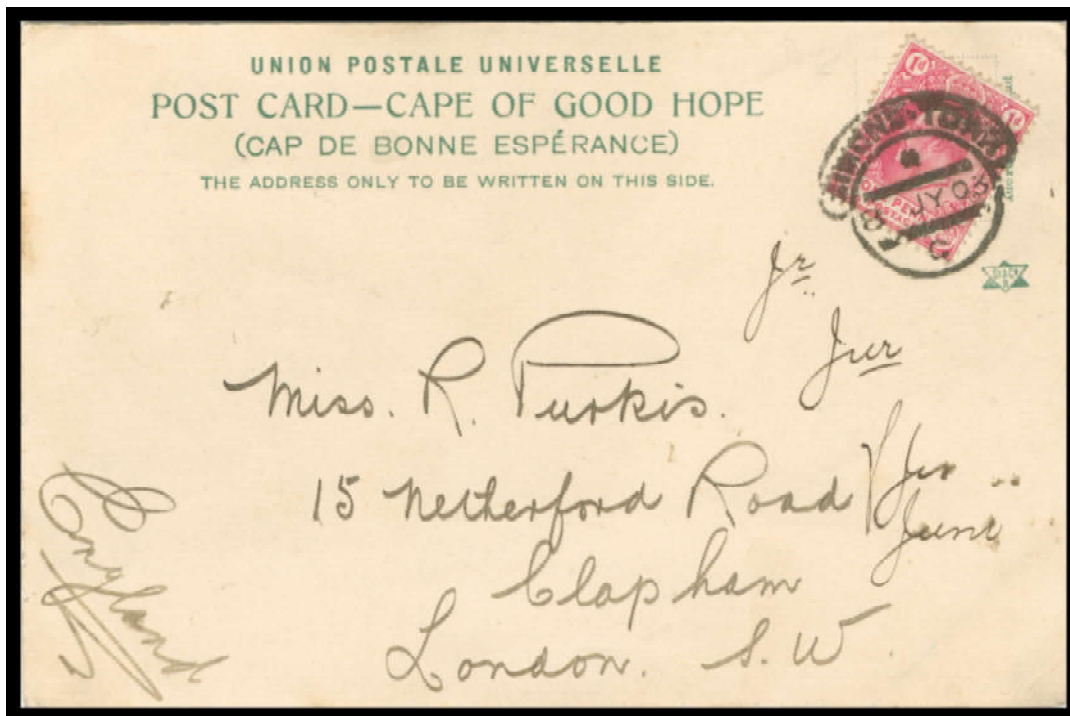 UNION POSTALE UNIVERSELLE
POST CARD—CAPE OF GOOD HOPE
(CAP DE BONNE ESPÉRANCE)
THE ADDRESS ONLY TO BE WRITTEN ON THIS SIDE.
1d 1d
SIMONS TOWN
JY 03
C
Jr
Jur
Miss. R. Purkis.
15 Netherford Road
June
Clapham
London. S. W.
England